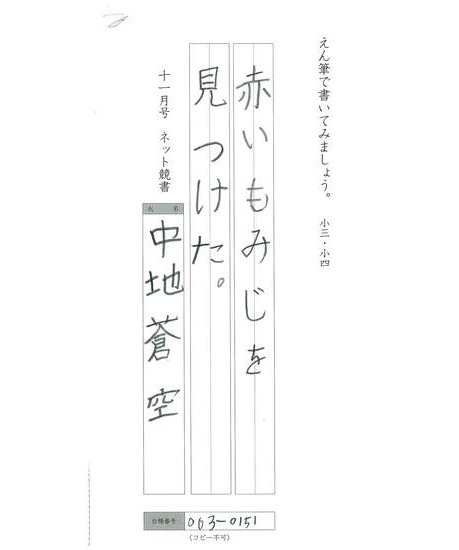 えん筆で書いてみましょう。 小三・小四
赤いもみじを
見つけた。
十一月号 ネット競書
氏 名
中地蒼空
台帳番号 063-0151
(コピー不可)